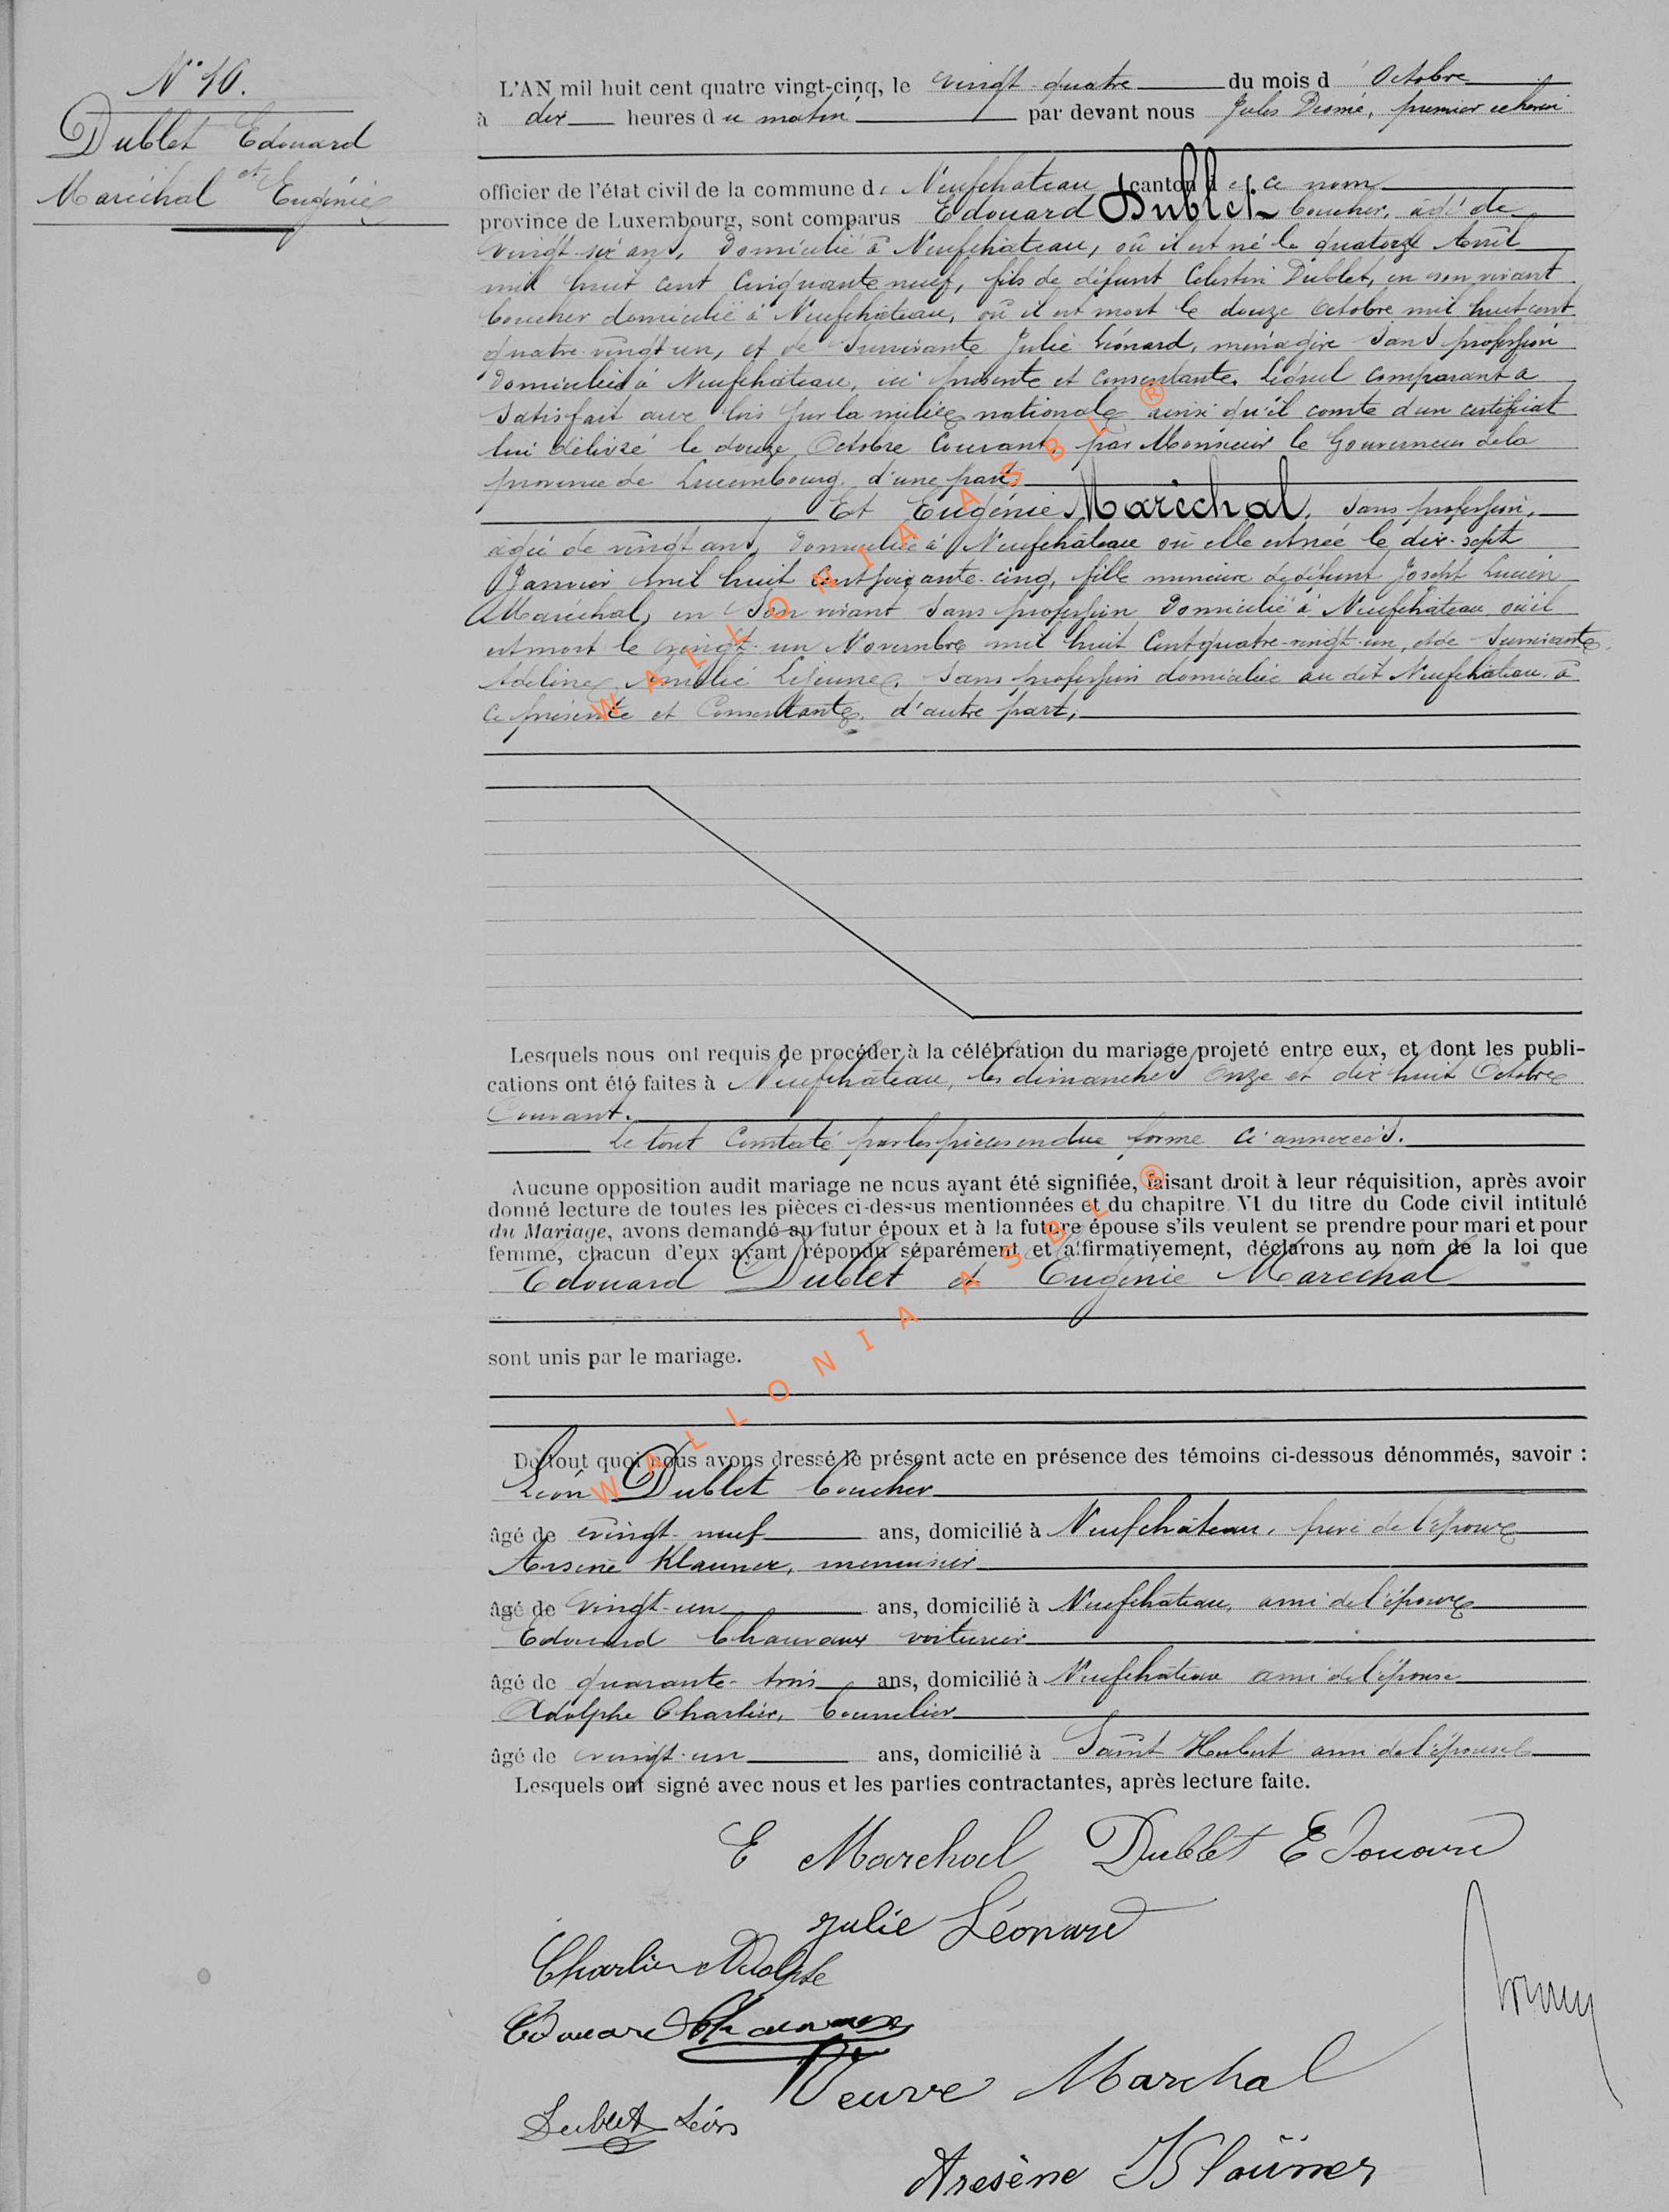 N° 10.
Dublet Edouard
et
Maréchal Eugénie
L'AN mil huit cent quatre vingt-cinq, le vingt-quatre du mois d Octobre
à dix heures du matin par devant nous Jules premier échevin
officier de l'état civil de la commune de Neufchateau canton de ce nom
province de Luxembourg, sont comparus Edouard Dublet boucher, âgé de
vingt-six ans, domicilié à Neufchâteau, où il est né le quatorze Avril
mil huit cent cinquante neuf, fils de défunt Célestin Dublet, en son vivant
boucher domicilié à Neufchâteau, où il est mort le douze Octobre mil huit cent
quatre-vingt un, et de survivante Julie Léonard, ménagère sans profession
domiciliée à Neufchâteau, ici présente et consentante. Lequel comparant a
satisfait aux lois sur la milice nationale ainsi qu'il conste d'un certificat
lui délivré le douze Octobre courant, par Monsieur le Gouverneur de la
province de Luxembourg d'une part
Et Eugénie Maréchal, sans profession,
âgée de vingt ans, domiciliée à Neufchâteau où elle est née le dix-sept
Janvier mil huit cent soixante-cinq, fille mineure de défunt Joseph Lucien
Maréchal, en son vivant sans profession domicilié à Neufchâteau où il
est mort le vingt-un Novembre mil huit cent quatre-vingt-un, et de survivante
Adeline Amélie Lejeune, sans profession domiciliée au dit Neufchâteau à
ce présente et consentante, d'autre part,
Lesquels nous ont requis de procéder à la célébration du mariage projeté entre eux, et dont les publi-
cations ont été faites à Neufchâteau, les dimanches onze et dix huit Octobre
courant.
Le tout constaté par les pièces en due forme ci annexées.
Aucune opposition audit mariage ne nous ayant été signifiée, faisant droit à leur réquisition, après avoir
donné lecture de toutes les pièces ci-dessus mentionnées et du chapitre VI du titre du Code civil intitulé
du Mariage, avons demandé au futur époux et à la future épouse s'ils veulent se prendre pour mari et pour
femme, chacun d'eux ayant répondu séparément et affirmativement, déclarons au nom de la loi que
Edouard Dublet et Eugénie Maréchal
sont unis par le mariage.
De tout quoi nous avons dressé le présent acte en présence des témoins ci-dessous dénommés, savoir :
Léon Dublet boucher
âgé de vingt-neuf ans, domicilié à Neufchâteau, frère de l'époux
Arsène Klauner, menuisier
âgé de vingt-un ans, domicilié à Neufchâteau, ami de l'époux
Edouard Chauvaux voiturier
âgé de quarante-trois ans, domicilié à Neufchâteau ami de l'épouse
Adolphe Charlier, tonnelier
âgé de vingt-un ans, domicilié à Saint Hubert ami de l'épouse
Lesquels ont signé avec nous et les parties contractantes, après lecture faite.
E Marchal Dublet Edouard
Julie Léonard
Charlier Adolphe
Edouard Chauvaux
Veuve Marchal
Dublet Léon
Arsène Klaüner
WALLONIA ASBL ®
WALLONIA ASBL ®